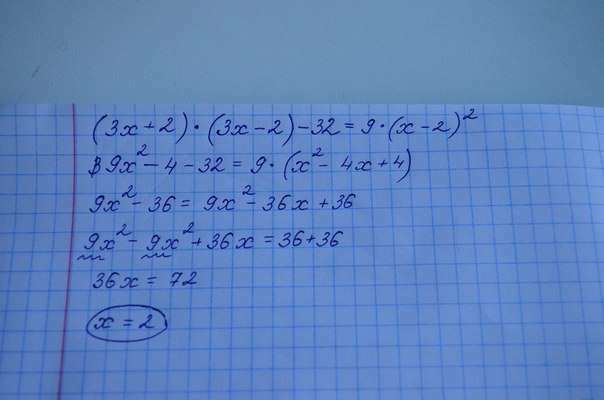 (3x+2)·(3x-2)-32=9·(x-2)²
9x²-4-32=9·(x²-4x+4)
9x²-36=9x²-36x+36
9x²-9x²+36x=36+36
36x=72
x=2